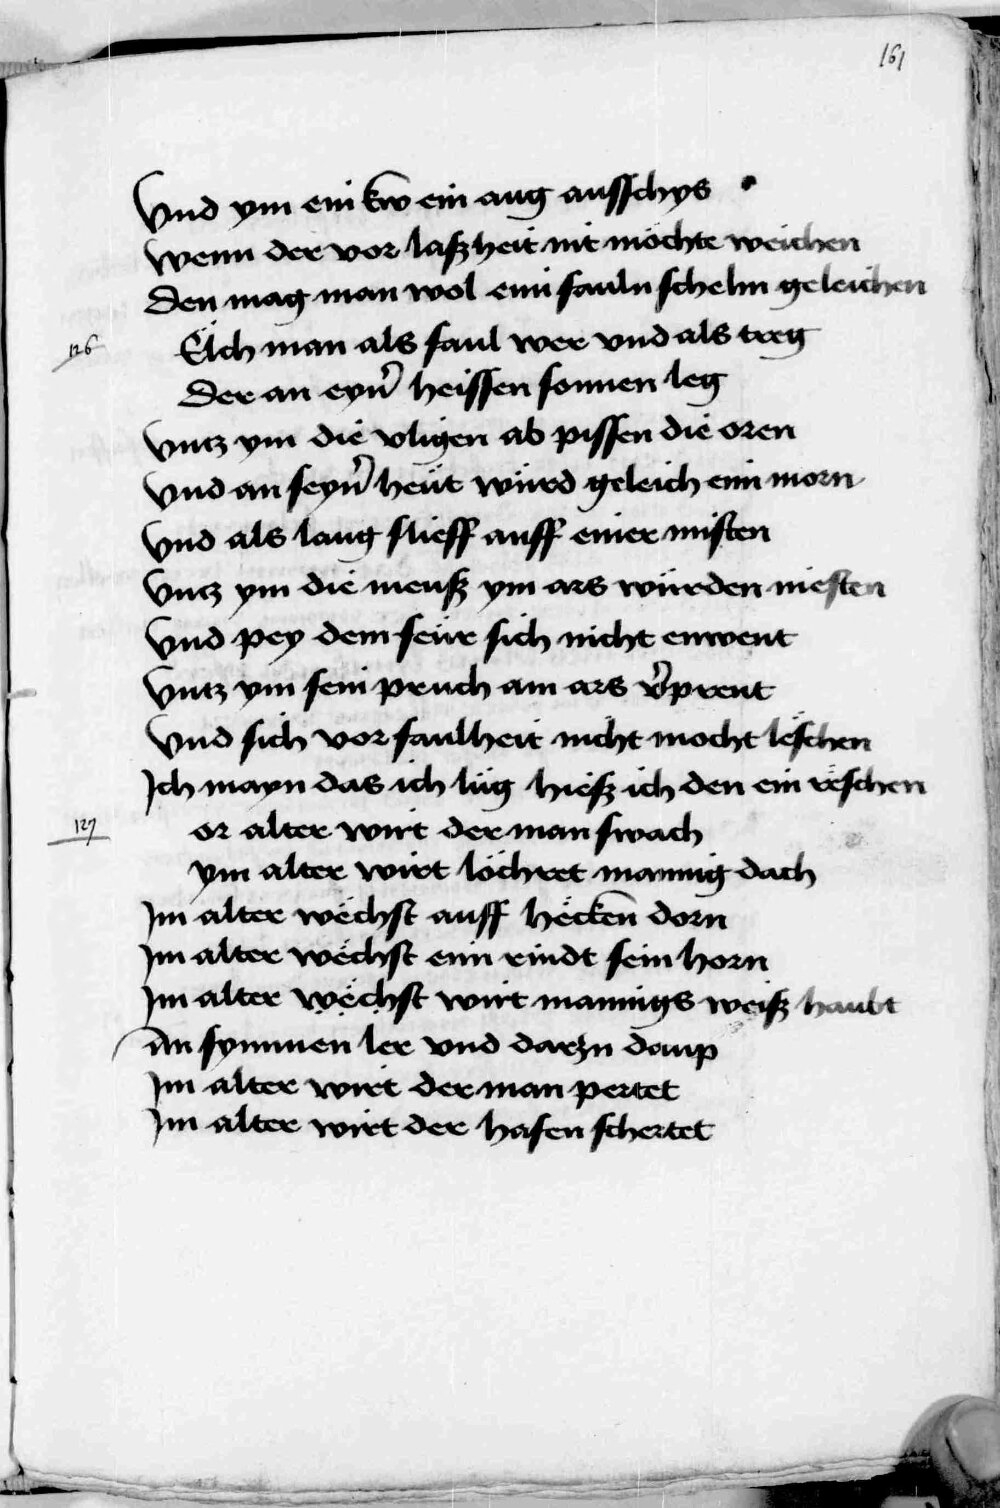 161
Vnd ym ein kw ein aug ausschys
Wenn der vor laßheit nit möchte weichen
Den mag man wol eim fauln schelm geleichen
126 Elch man als faul wer vnd als treg
Der an eyn̄ heissen sonnen leg
Vntz ym die vligen ab pissen die oren
Vnd an seyn̄ heüt würd geleich eim morn
Vnd als lang slieff auff einer misten
Vntz ym die meuß ym ars würden niesten
Vnd pey dem feür sich nicht enwent
Vntz ym sein pruch am ars v̄prent
Vnd sich vor faulheit nicht mocht leschen
Ich mayn das ich lüg hieß ich den ein reschen
127 or alter wirt der man swach
ym alter wirt löchret mannig dach
Im alter wechst auff hecken̄ dorn
Im alter wechst eim rindt sein horn
Im alter wechst wirt mannigs weiß haubt
An synnen ler vnd darzu daup
Im alter wirt der man pertet
Im alter wirt der hafen schertet